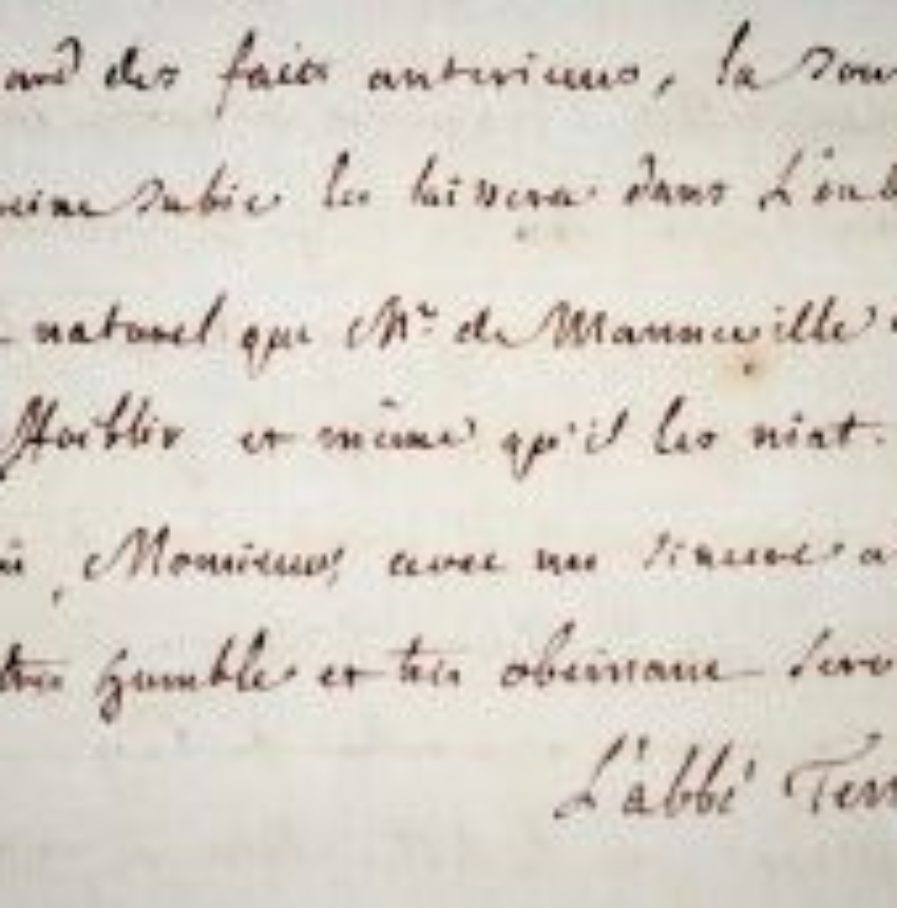 des faits anterieurs, la
subie les laissera dans L'oub
naturel que Mr de Manneville
affoiblir et même qu'il les niat.
Monsieur, avec un sincere a
tres humble et tres obeissant serv
L'abbé Terr